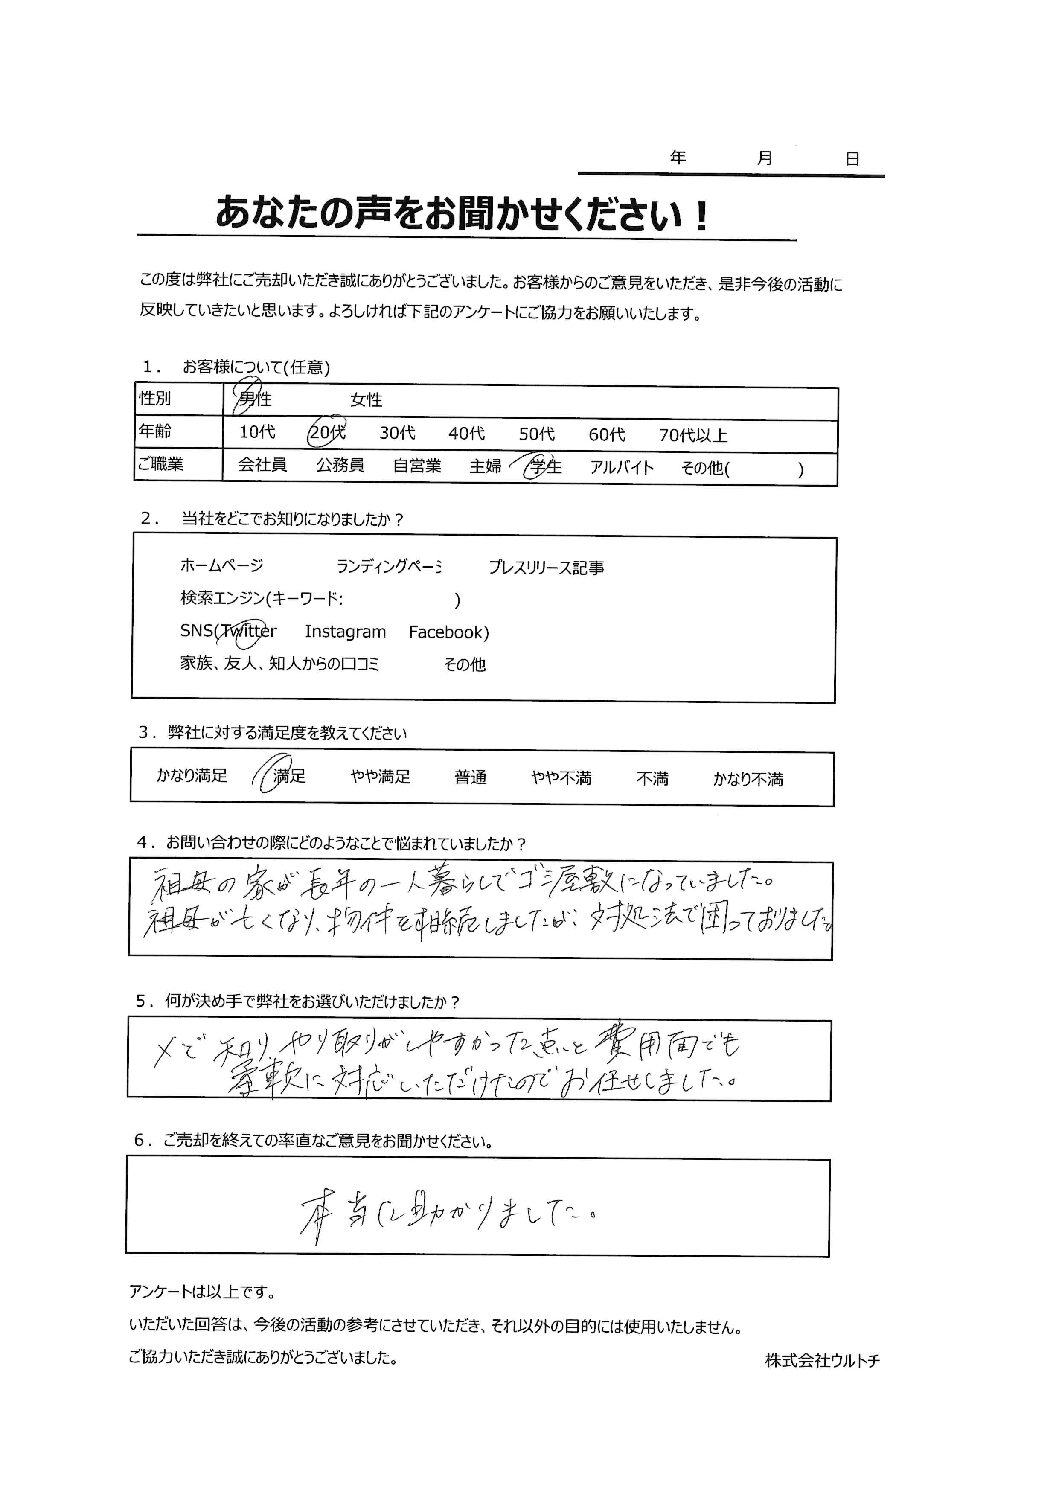 年 月 日
あなたの声をお聞かせください！
この度は弊社にご売却いただき誠にありがとうございました。お客様からのご意見をいただき、是非今後の活動に
反映していきたいと思います。よろしければ下記のアンケートにご協力をお願いいたします。
1． お客様について(任意)
性別 男性 女性
年齢 10代 20代 30代 40代 50代 60代 70代以上
ご職業 会社員 公務員 自営業 主婦 学生 アルバイト その他( )
2． 当社をどこでお知りになりましたか？
ホームページ ランディングページ プレスリリース記事
検索エンジン(キーワード: )
SNS(Twitter Instagram Facebook)
家族、友人、知人からの口コミ その他
3．弊社に対する満足度を教えてください
かなり満足 満足 やや満足 普通 やや不満 不満 かなり不満
4．お問い合わせの際にどのようなことで悩まれていましたか？
祖母の家が長年の一人暮らしでゴミ屋敷になっていました。
祖母が亡くなり、物件を相続しましたが、対処法で困っておりました。
5．何が決め手で弊社をお選びいただけましたか？
Xで知り、やり取りがしやすかった点と費用面でも
柔軟に対応いただけたのでお任せしました。
6．ご売却を終えての率直なご意見をお聞かせください。
本当に助かりました。
アンケートは以上です。
いただいた回答は、今後の活動の参考にさせていただき、それ以外の目的には使用いたしません。
ご協力いただき誠にありがとうございました。
株式会社ウルトチ